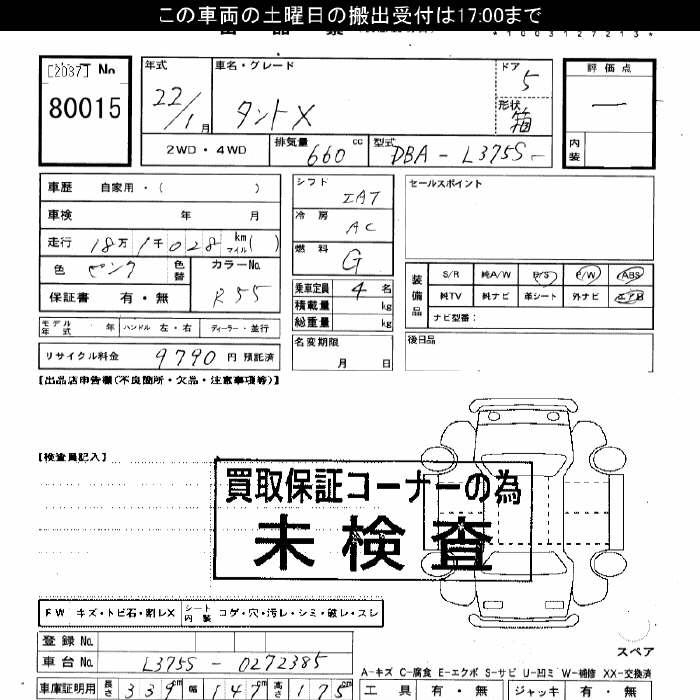 この車両の土曜日の搬出受付は17:00まで
*1003127213*
[2037] No
80015
年式
22/1月
車名・グレード
タントX
ドア
5
形状
箱
評価点
一
内装
2WD・4WD
排気量
660
cc
型式
DBA-L375S-
車歴 自家用・( )
車検 年 月
走行 18万1千028 km マイル( )
色 ピンク 色替
カラーNo.
R55
保証書 有・無
モデル年式 年 ハンドル 左・右 ディーラー・並行
リサイクル料金 9790 円 預託済
シフト
IAT
冷房
AC
燃料
G
乗車定員 4 名
積載量 kg
総重量 kg
名変期限
月 日
セールスポイント
装備品
S/R 純A/W P/S P/W ABS
純TV 純ナビ 革シート 外ナビ エアB
ナビ型番:
後日品
【出品店申告欄(不良箇所・欠品・注意事項等)】
【検査員記入】
買取保証コーナーの為
未検査
FW キズ・トビ石・割レX シート内装 コゲ・穴・汚レ・シミ・破レ・スレ
登録No.
車台No. L375S-0272385
車庫証明用 長さ 339cm 幅 147cm 高さ 175cm
スペア
A-キズ C-腐食 E-エクボ S-サビ U-凹ミ W-補修 XX-交換済
工具 有・無 ジャッキ 有・無